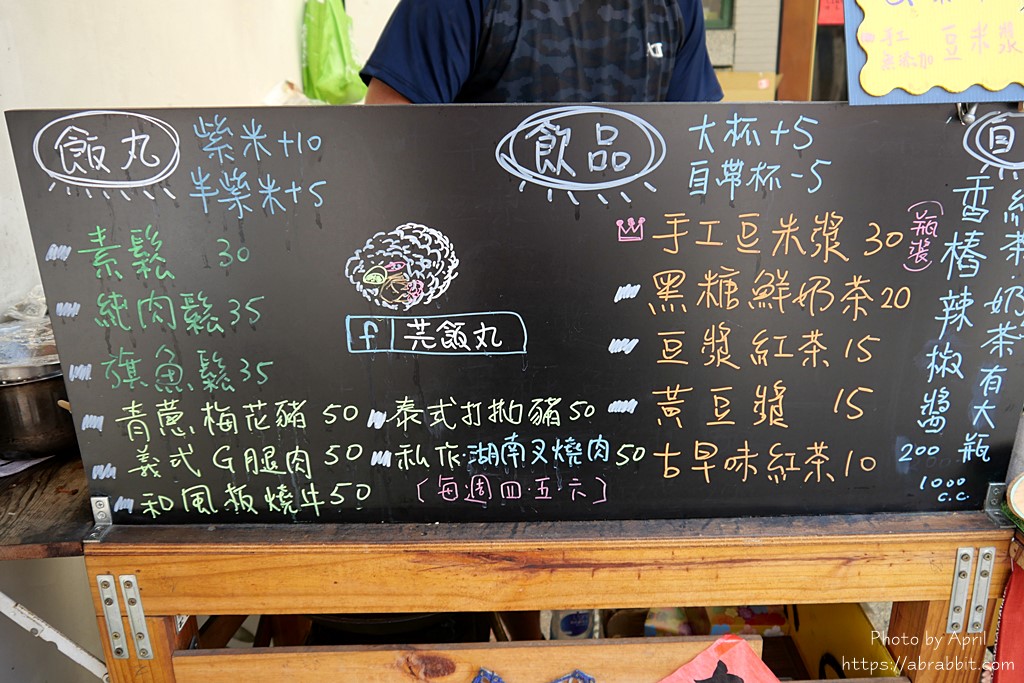 手工 豆米漿
無添加
飯丸
紫米+10
半紫米+5
素鬆 30
純肉鬆 35
旗魚鬆 35
青蔥梅花豬 50
義式G腿肉 50
和風板燒牛 50
f 芫飯丸
泰式打拋豬 50
私作湖南叉燒肉 50
(每週四.五.六)
飲品
大杯+5
自帶杯-5
手工豆米漿 30 (瓶漿)
黑糖鮮奶茶 20
豆漿紅茶 15
黃豆漿 15
古早味紅茶 10
自
香椿辣椒醬
200
紅茶
奶茶有大瓶
1000 c.c.
Photo by April
https://abrabbit.com